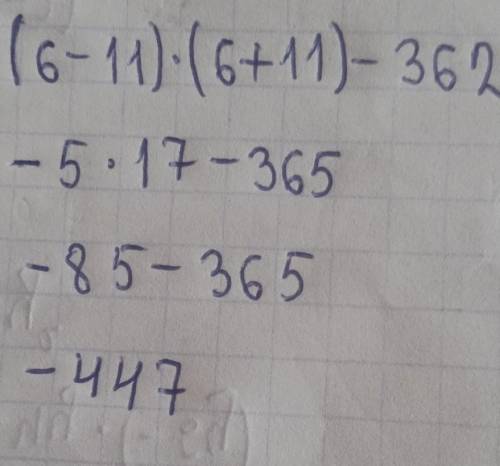 (6-11)·(6+11)-362
-5·17-365
-85-365
-447